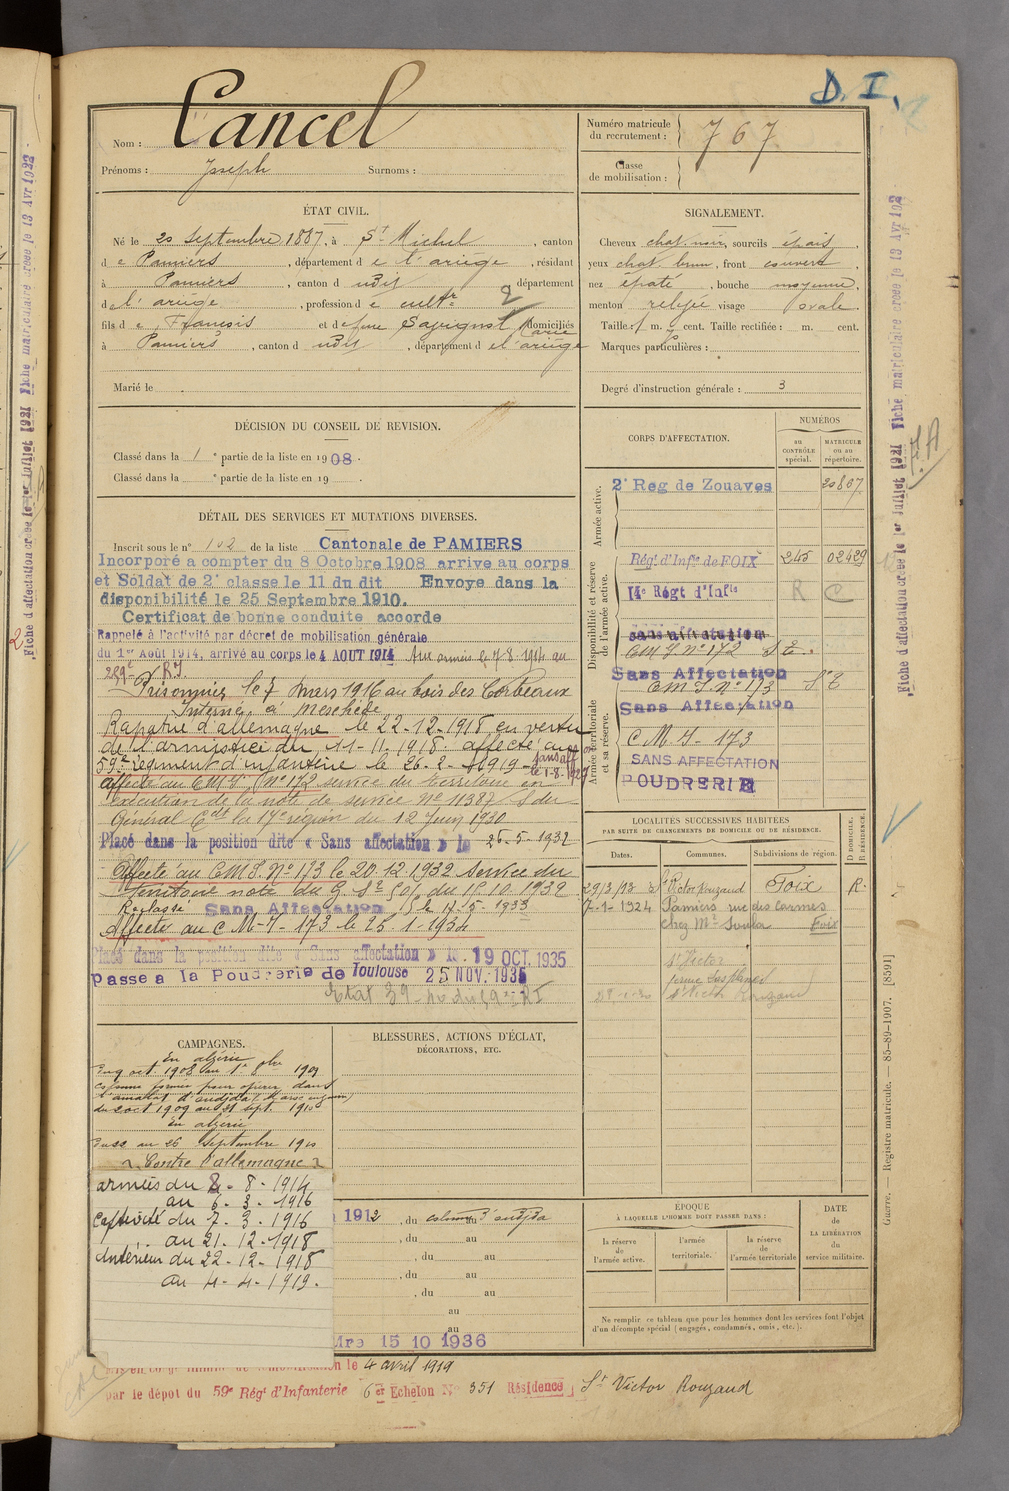 D. I.
Nom : Cancel
Prénoms : Joseph Surnoms :
Numéro matricule du recrutement : 767
Classe de mobilisation :
ÉTAT CIVIL.
Né le 20 Septembre 1887, à St Michel, canton
de Pamiers, département de l'ariège, résidant
à Pamiers, canton d udit département
d l'ariège, profession de cultr
fils de François et de feue Savignol Marie domiciliés
à Pamiers, canton d udit, département de l'ariège
Marié le
SIGNALEMENT.
Cheveux chat. noir, sourcils épais,
yeux chat. brun, front couvert,
nez épaté, bouche moyenne,
menton visage ovale.
Taille : 1 m. cent. Taille rectifiée : m. cent.
Marques particulières :
Degré d'instruction générale : 3
DÉCISION DU CONSEIL DE REVISION.
Classé dans la 1e partie de la liste en 1908.
Classé dans la e partie de la liste en 19 .
DÉTAIL DES SERVICES ET MUTATIONS DIVERSES.
Inscrit sous le n° 102 de la liste Cantonale de PAMIERS
Incorporé a compter du 8 Octobre 1908 arrive au corps
et Soldat de 2e classe le 11 du dit Envoye dans la
disponibilité le 25 Septembre 1910.
Certificat de bonne conduite accorde
Rappelé à l'activité par décret de mobilisation générale
du 1er Août 1914, arrivé au corps le 4 AOUT 1914 Aux armées le 7 8 1914 au
259e RI.
Prisonnier le 7 mars 1916 au bois des Corbeaux
Interné à Meschède
Rapatrié d'allemagne le 22-12-1918 en vertu
de l'armistice du 11-11-1918. affecté au
59e régiment d'infanterie le 26-2-1919 - sans aff on
le 1-8-1927
affecté au CMI (n° 172 service du territoire en
exécution de la note de service N° 11387 S du
Général Cdt la 17e région du 12 Juin 1930
Placé dans la position dite « Sans affectation » le 26-5-1932
Affecté au CMI. N° 173 le 20.12.1932 Service du
Territoire note du G. St du 15.10.1932
Reclassé Sans Affectation le 17-5-1933
Affecté au CMI-173 le 25-1-1934
Placé dans la position dite « Sans affectation » le 19 OCT. 1935
Passe a la Poudrerie de Toulouse 25 NOV. 1935
Etat 39
CORPS D'AFFECTATION.
NUMÉROS
au CONTRÔLE spécial.
MATRICULE ou au répertoire.
Armée active.
2e Reg de Zouaves 20807
Disponibilité et réserve de l'armée active.
Régt d'Infie de FOIX 245 02429
14e Régt d'Infie R C
sans affectation
CMI N° 172 St
Sans Affectation
CMI. N° 173 St
Armée territoriale et sa réserve.
Sans Affectation
CMI-173
SANS AFFECTATION
POUDRERIE
LOCALITÉS SUCCESSIVES HABITÉES
PAR SUITE DE CHANGEMENTS DE DOMICILE OU DE RÉSIDENCE.
Dates. Communes. Subdivisions de région. D DOMICILE. R RÉSIDENCE.
29/3/13 St Victor Rouzaud Foix R.
7-1-1924 Pamiers rue des Carmes
chez Mr Soula Foix
St Victor
St Victor Rouzaud
CAMPAGNES.
En algérie
Du 9 oct. 1908 au 1er 8bre 1909
Colonne formée pour opérer dans
l'amalat d'oudjda (Maroc
du 2 oct 1909 au 21 sept. 1910
En algérie
Du 22 au 26 Septembre 1910
Contre l'allemagne
armées du 8-8-1914
au 6-3-1916
Captivité du 7-3-1916
au 21-12-1918
Intérieur du 22-12-1918
au 4-4-1919.
BLESSURES, ACTIONS D'ÉCLAT,
DÉCORATIONS, ETC.
1912, du colonne d'oudjda
, du au
, du au
, du au
, du au
au
au
15 10 1936
ÉPOQUE
À LAQUELLE L'HOMME DOIT PASSER DANS :
la réserve de l'armée active.
l'armée territoriale.
la réserve de l'armée territoriale
DATE de LA LIBÉRATION du service militaire.
Ne remplir ce tableau que pour les hommes dont les services font l'objet
d'un décompte spécial (engagés, condamnés, omis, etc.).
le 4 avril 1919
par le dépot du 59e Régt d'Infanterie 6e Echelon N° 351 Résidence St Victor Rouzaud
Fiche d'affectation créée le 1er Juillet 1921 Fiche matriculaire créée le 13 Avr 192
Fiche d'affectation créée le 1er Juillet 1921 Fiche matriculaire créée le 13 Avr 1922
Guerre. — Registre matricule. — 85-89-1907. [8591]